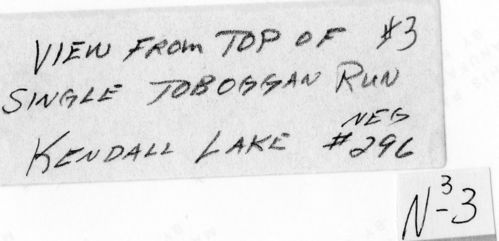 VIEW FROM TOP OF #3
SINGLE TOBOGGAN RUN
KENDALL LAKE NEG #296
N-3 3